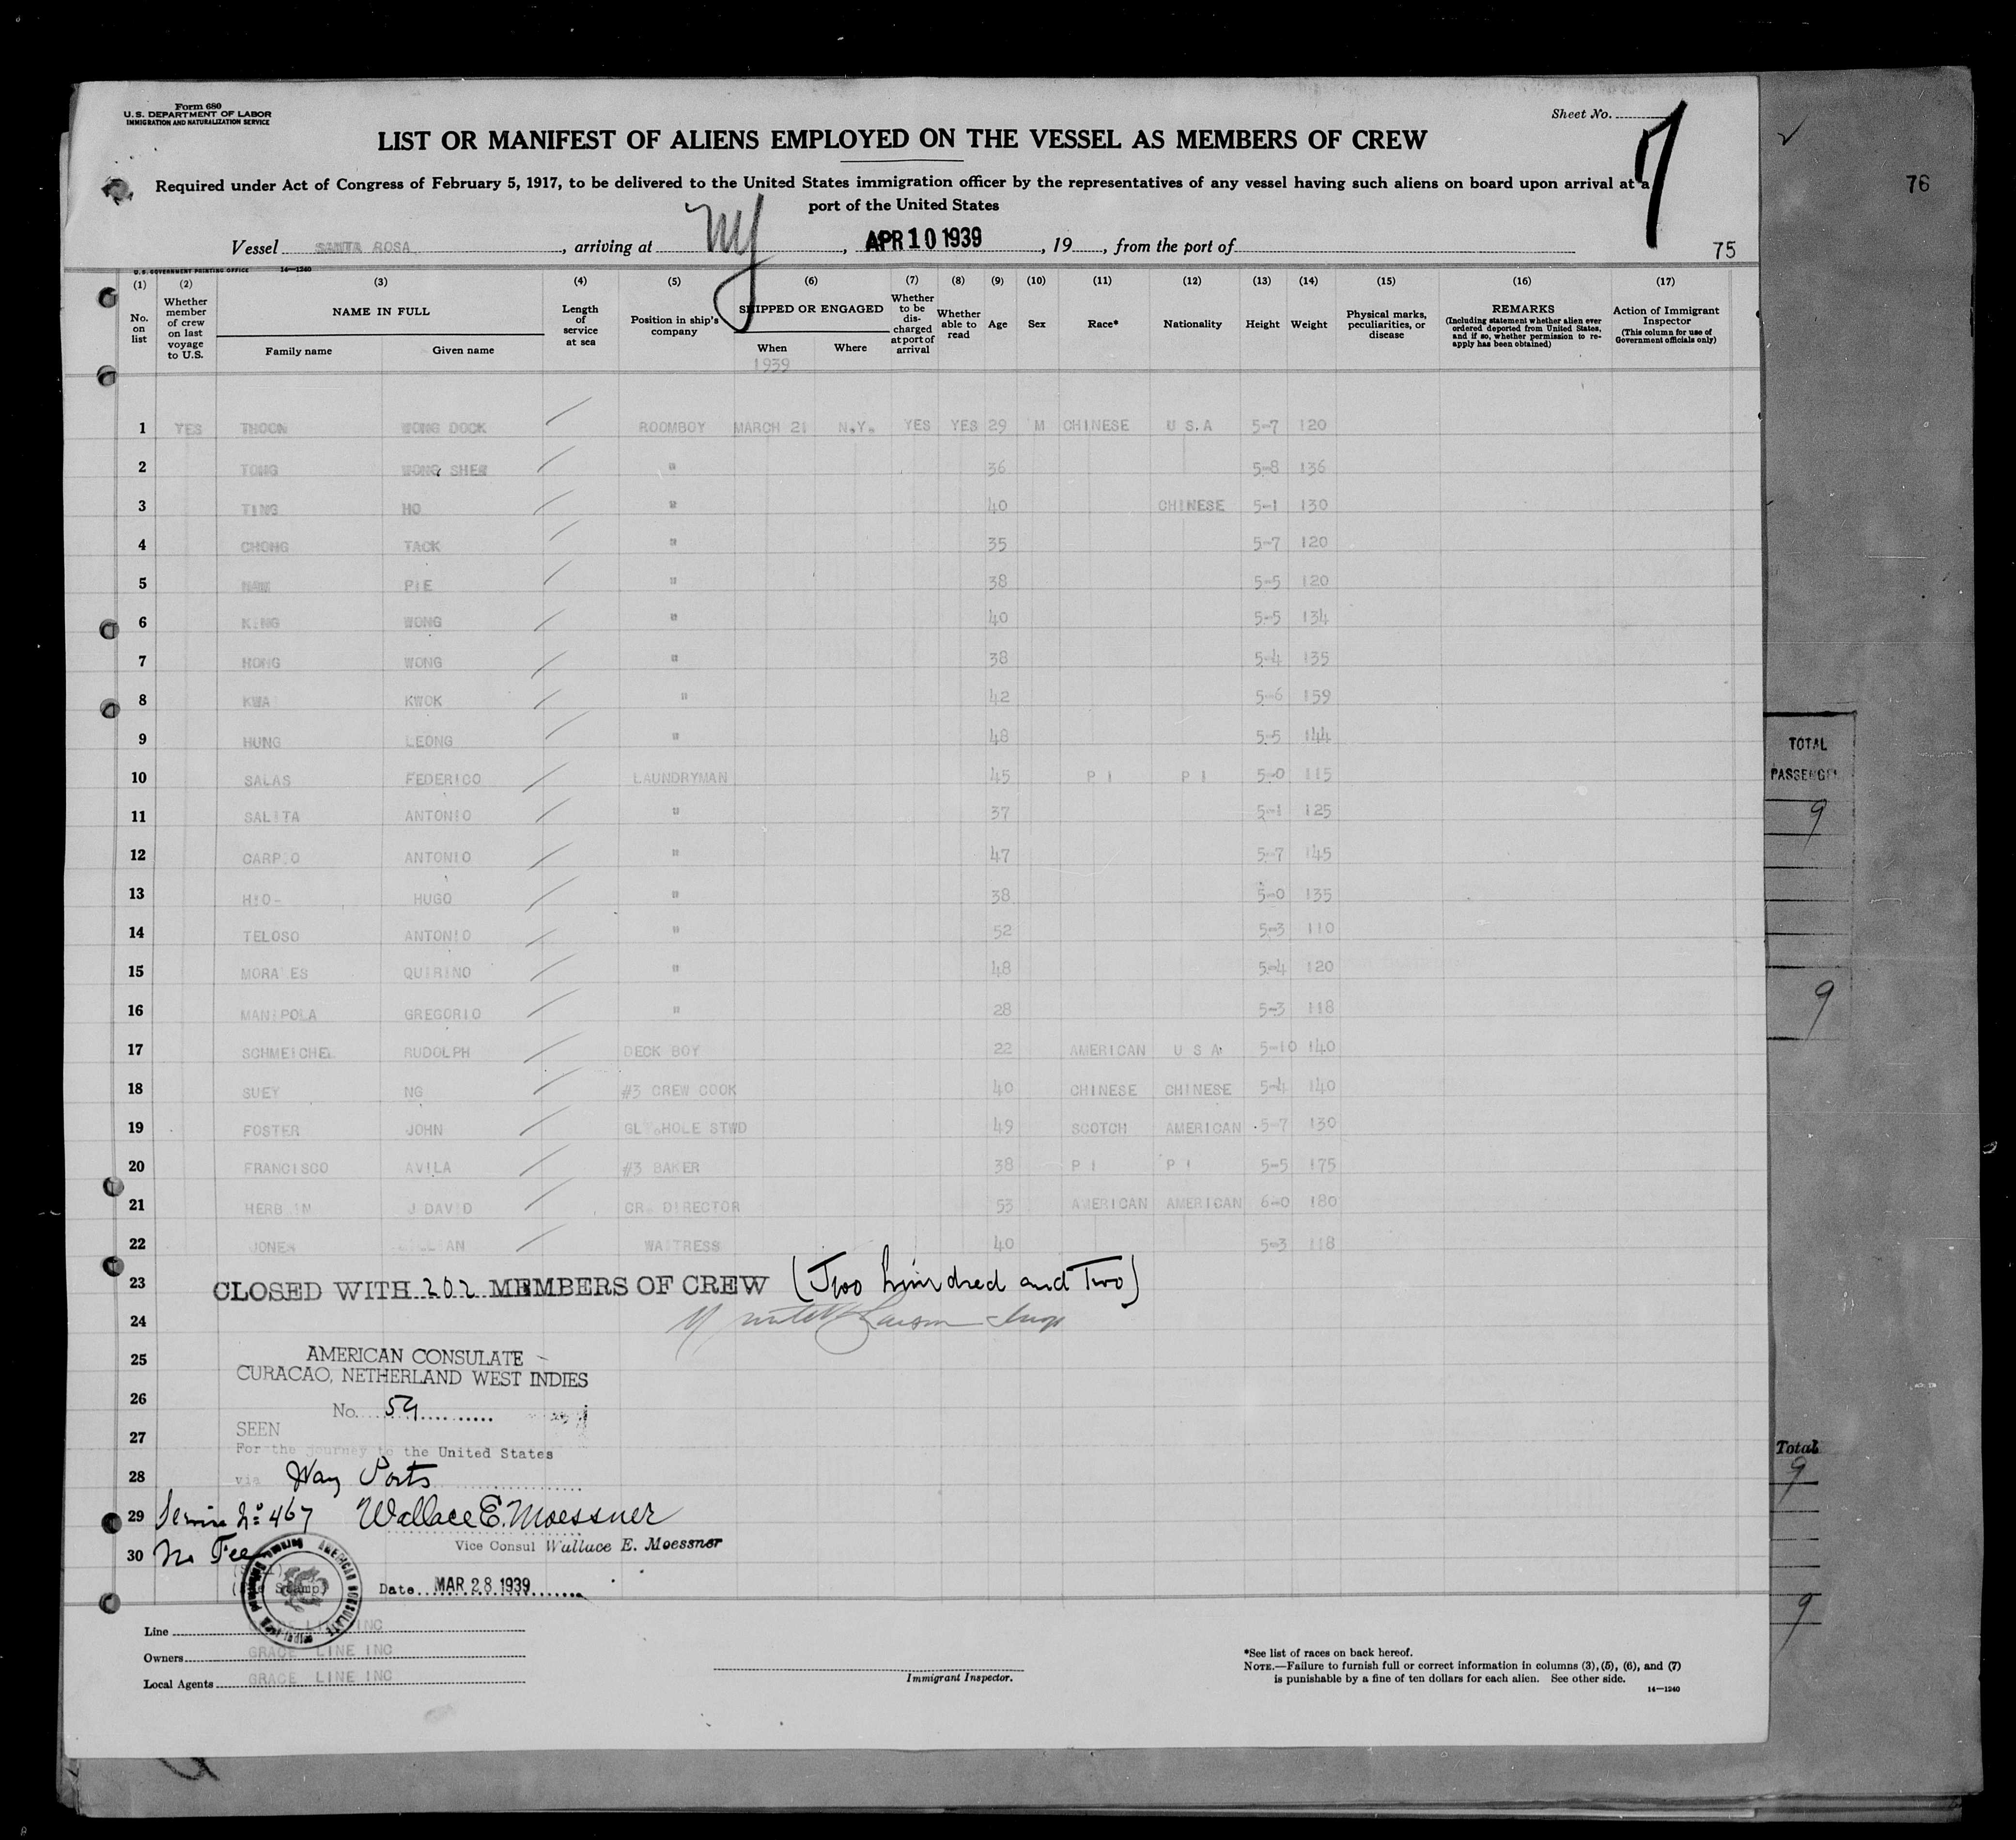 Form 680
U.S. DEPARTMENT OF LABOR
IMMIGRATION AND NATURALIZATION SERVICE
Sheet No. 7
LIST OR MANIFEST OF ALIENS EMPLOYED ON THE VESSEL AS MEMBERS OF CREW
Required under Act of Congress of February 5, 1917, to be delivered to the United States immigration officer by the representatives of any vessel having such aliens on board upon arrival at a
port of the United States
76
Vessel SANTA ROSA, arriving at NY, APR 10 1939, 19, from the port of
75
U.S. GOVERNMENT PRINTING OFFICE 14—1240
(1) (2) (3) (4) (5) (6) (7) (8) (9) (10) (11) (12) (13) (14) (15) (16) (17)
No. on list
Whether member of crew on last voyage to U.S.
NAME IN FULL
Family name Given name
Length of service at sea
Position in ship's company
SHIPPED OR ENGAGED
When Where
1939
Whether to be discharged at port of arrival
Whether able to read
Age
Sex
Race*
Nationality
Height
Weight
Physical marks, peculiarities, or disease
REMARKS
(Including statement whether alien ever ordered deported from United States, and if so, whether permission to re-apply has been obtained)
Action of Immigrant Inspector
(This column for use of Government officials only)
1 YES THOON WONG DOCK ROOMBOY MARCH 21 N.Y. YES YES 29 M CHINESE U S.A 5-7 120
2 TONG WONG SHEW " 36 5-8 136
3 TING HO " 40 CHINESE 5-1 130
4 CHONG TACK " 35 5-7 120
5 PIE " 38 5-5 120
6 KING WONG " 40 5-5 134
7 HONG WONG " 38 5-4 135
8 KWAI KWOK " 42 5-6 159
9 HUNG LEONG " 48 5-5 144
10 SALAS FEDERICO LAUNDRYMAN 45 P I P I 5-0 115
11 SALITA ANTONIO " 37 5-1 125
12 CARPIO ANTONIO " 47 5-7 145
13 HUGO " 38 5-0 135
14 TELOSO ANTONIO " 52 5-3 110
15 MORALES QUIRINO " 48 5-4 120
16 MANIPOLA GREGORIO " 28 5-3 118
17 SCHMEICHEL RUDOLPH DECK BOY 22 AMERICAN U S A 5-10 140
18 SUEY NG #3 CREW COOK 40 CHINESE CHINESE 5-4 140
19 FOSTER JOHN GLYHOLE STWD 49 SCOTCH AMERICAN 5-7 130
20 FRANCISCO AVILA #3 BAKER 38 P I P I 5-5 175
21 J DAVID CR. DIRECTOR 53 AMERICAN AMERICAN 6-0 180
22 WAITRESS 40 5-3 118
23 CLOSED WITH 202 MEMBERS OF CREW (Two hundred and Two)
24
25 AMERICAN CONSULATE
CURACAO, NETHERLAND WEST INDIES
26 No. 54
27 SEEN
For the journey to the United States
28 via Way Ports
29 Service No 467 Wallace E. Moessner
30 No Fee
Vice Consul Wallace E. Moessner
AMERICAN CONSULATE
Date MAR 28 1939
Line GRACE LINE INC
Owners GRACE LINE INC
Local Agents GRACE LINE INC
Immigrant Inspector.
*See list of races on back hereof.
NOTE.—Failure to furnish full or correct information in columns (3), (5), (6), and (7)
is punishable by a fine of ten dollars for each alien. See other side.
14—1240
TOTAL
PASSENGE
9
9
Total
9
9